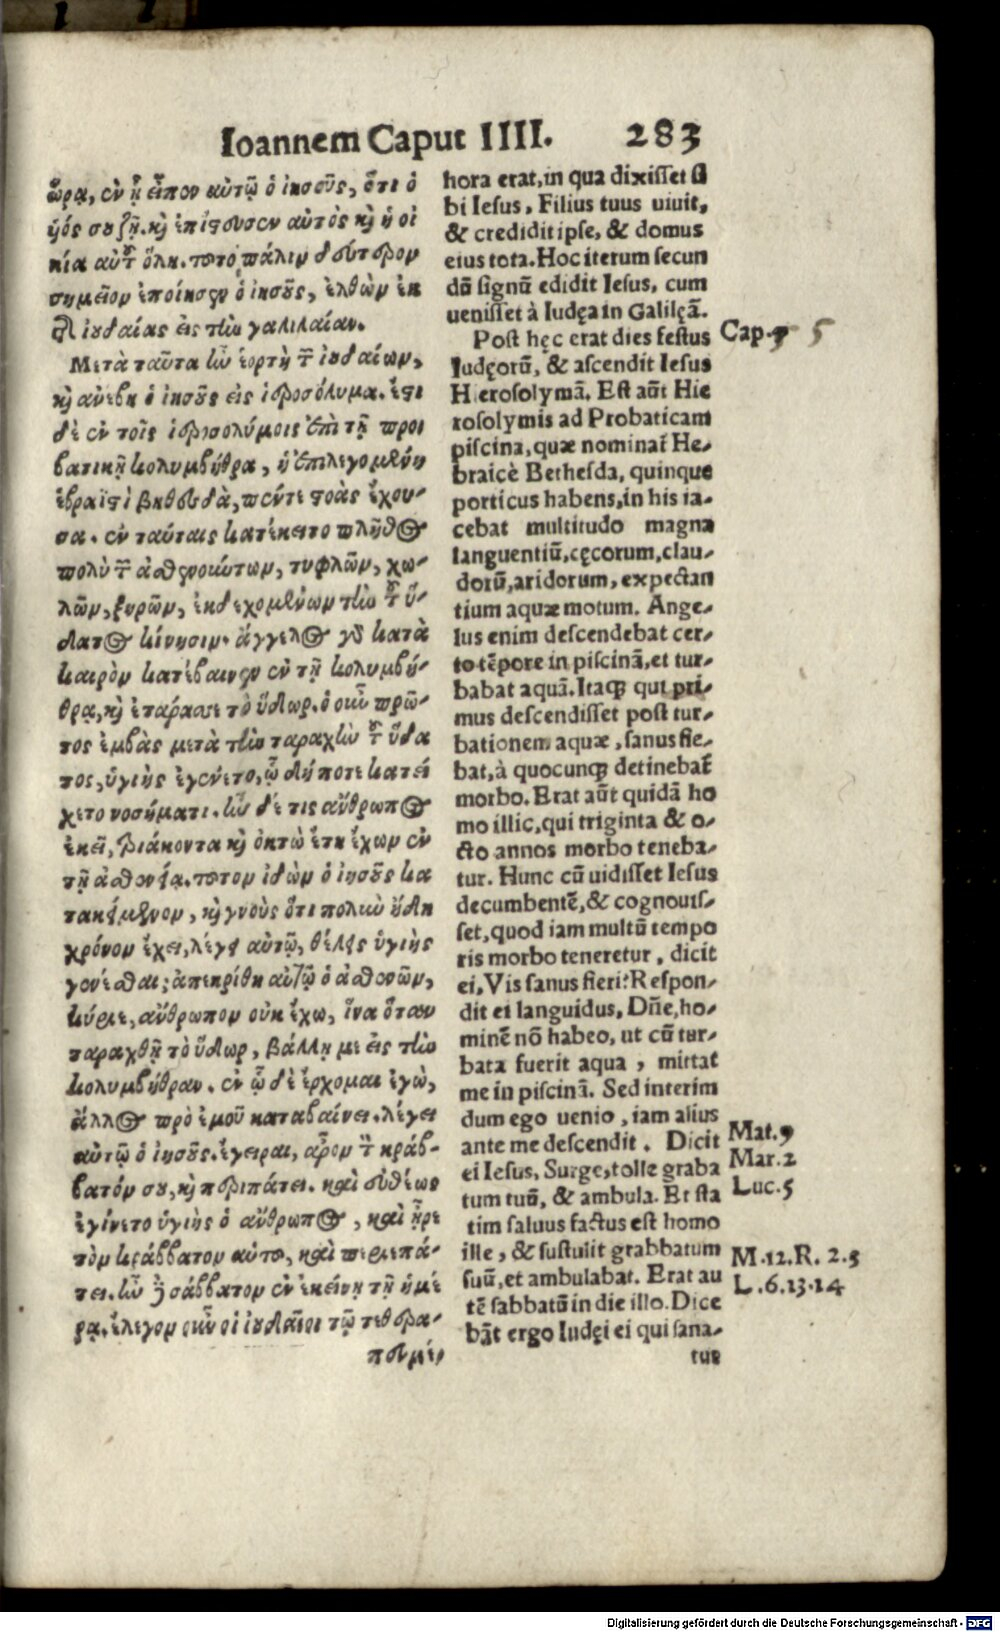 Ioannem Caput IIII. 283
ὥρᾳ, ἐν ᾗ εἶπον αὐτῷ ὁ ἰησοῦς, ὅτι ὁ
ὑιός σου ζῇ. καὶ ἐπίστευσεν αὐτὸς καὶ ἡ οἰ
κία αὐτοῦ ὅλη. τοῦτο πάλιν δεύτερον
σημεῖον ἐποίησεν ὁ ἰησοῦς, ἐλθὼν ἐκ
τῆς ἰουδαίας εἰς τὴν γαλιλαίαν.
Μετὰ ταῦτα ἦν ἑορτὴ τῶν ἰουδαίων,
καὶ ἀνέβη ὁ ἰησοῦς εἰς ἱεροσόλυμα. ἔστι
δὲ ἐν τοῖς ἱεροσολύμοις ἐπὶ τῇ προι
βατικῇ κολυμβήθρα, ἡ ἐπιλεγομένη
ἑβραϊστὶ βηθεσδὰ, πέντε στοὰς ἔχου-
σα. ἐν ταύταις κατέκειτο πλῆθος
πολὺ τῶν ἀσθενούντων, τυφλῶν, χω-
λῶν, ξυρῶν, ἐκδεχομένων τὴν τοῦ ὕ-
δατος κίνησιν. ἄγγελος γὰρ κατὰ
καιρὸν κατέβαινεν ἐν τῇ κολυμβή-
θρᾳ, καὶ ἐτάρασσε τὸ ὕδωρ. ὁ οὖν πρῶ-
τος ἐμβὰς μετὰ τὴν ταραχὴν τοῦ ὕδα
τος, ὑγιὴς ἐγένετο, ᾧ δήποτε κατεί
χετο νοσήματι. ἦν δέ τις ἄνθρωπος
ἐκεῖ, τριάκοντα καὶ ὀκτὼ ἔτη ἔχων ἐν
τῇ ἀσθενείᾳ. τοῦτον ἰδὼν ὁ ἰησοῦς κα
τακείμενον, καὶ γνοὺς ὅτι πολὺν ἤδη
χρόνον ἔχει, λέγει αὐτῷ, θέλεις ὑγιὴς
γονέσθαι; ἀπεκρίθη αὐτῷ ὁ ἀσθενῶν,
κύριε, ἄνθρωπον οὐκ ἔχω, ἵνα ὅταν
ταραχθῇ τὸ ὕδωρ, βάλλῃ με εἰς τὴν
κολυμβήθραν. ἐν ᾧ δὲ ἔρχομαι ἐγὼ,
ἄλλος πρὸ ἐμοῦ καταβαίνει. λέγει
αὐτῷ ὁ ἰησοῦς. ἔγειραι, ἆρον τὸν κράβ-
βατόν σου, καὶ περιπάτει. καὶ εὐθέως
ἐγίνετο ὑγιὴς ὁ ἄνθρωπος, καὶ ἦρε
τὸν κράββατον αὐτοῦ, καὶ περιεπά-
τει. ἦν δὲ σάββατον ἐν ἐκείνῃ τῇ ἡμέ
ρᾳ. ἔλεγον οὖν οἱ ἰουδαῖοι τῷ τεθερα-
πευμέ-
hora erat, in qua dixisset si
bi Iesus, Filius tuus uiuit,
& credidit ipse, & domus
eius tota. Hoc iterum secun
dũ signũ edidit Iesus, cum
uenisset à Iudęa in Galilęã.
Post hęc erat dies festus
Iudęorũ, & ascendit Iesus
Hierosolymã. Est aũt Hie
rosolymis ad Probaticam
piscina, quæ nominat̃ He-
braicè Bethesda, quinque
porticus habens, in his ia-
cebat multitudo magna
languentiũ, cęcorum, clau-
dorũ, aridorum, expectan
tium aquæ motum. Ange-
lus enim descendebat cer-
to tẽpore in piscinã, et tur-
babat aquã. Itaqꝫ qui pri-
mus descendisset post tur-
bationem aquæ, sanus fie-
bat, à quocunqꝫ detinebat̃
morbo. Erat aũt quidã ho
mo illic, qui triginta & o-
cto annos morbo teneba-
tur. Hunc cũ uidisset Iesus
decumbentẽ, & cognouis-
set, quod iam multũ tempo
ris morbo teneretur, dicit
ei, Vis sanus fieri? Respon-
dit ei languidus, Dñe, ho-
minẽ nõ habeo, ut cũ tur-
bata fuerit aqua, mittat
me in piscinã. Sed interim
dum ego uenio, iam alius
ante me descendit. Dicit
ei Iesus, Surge, tolle graba
tum tuũ, & ambula. Et sta
tim saluus factus est homo
ille, & sustulit grabbatum
suũ, et ambulabat. Erat au
tẽ sabbatũ in die illo. Dice
bãt ergo Iudęi ei qui sana-
tus
Cap. 5
Mat.9
Mar.2
Luc.5
M.12.R. 2.3
L.6.13.14
Digitalisierung gefördert durch die Deutsche Forschungsgemeinschaft - DFG